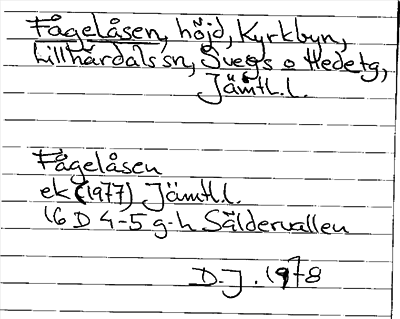 Fågelåsen, höjd, Kyrkbyn,
Lillhärdals sn, Svegs o Hedetg,
Jämtl. l.
Fågelåsen
ek (1977) Jämtl. l.
16 D 4-5 g-h Säldervallen
D.J. 1978